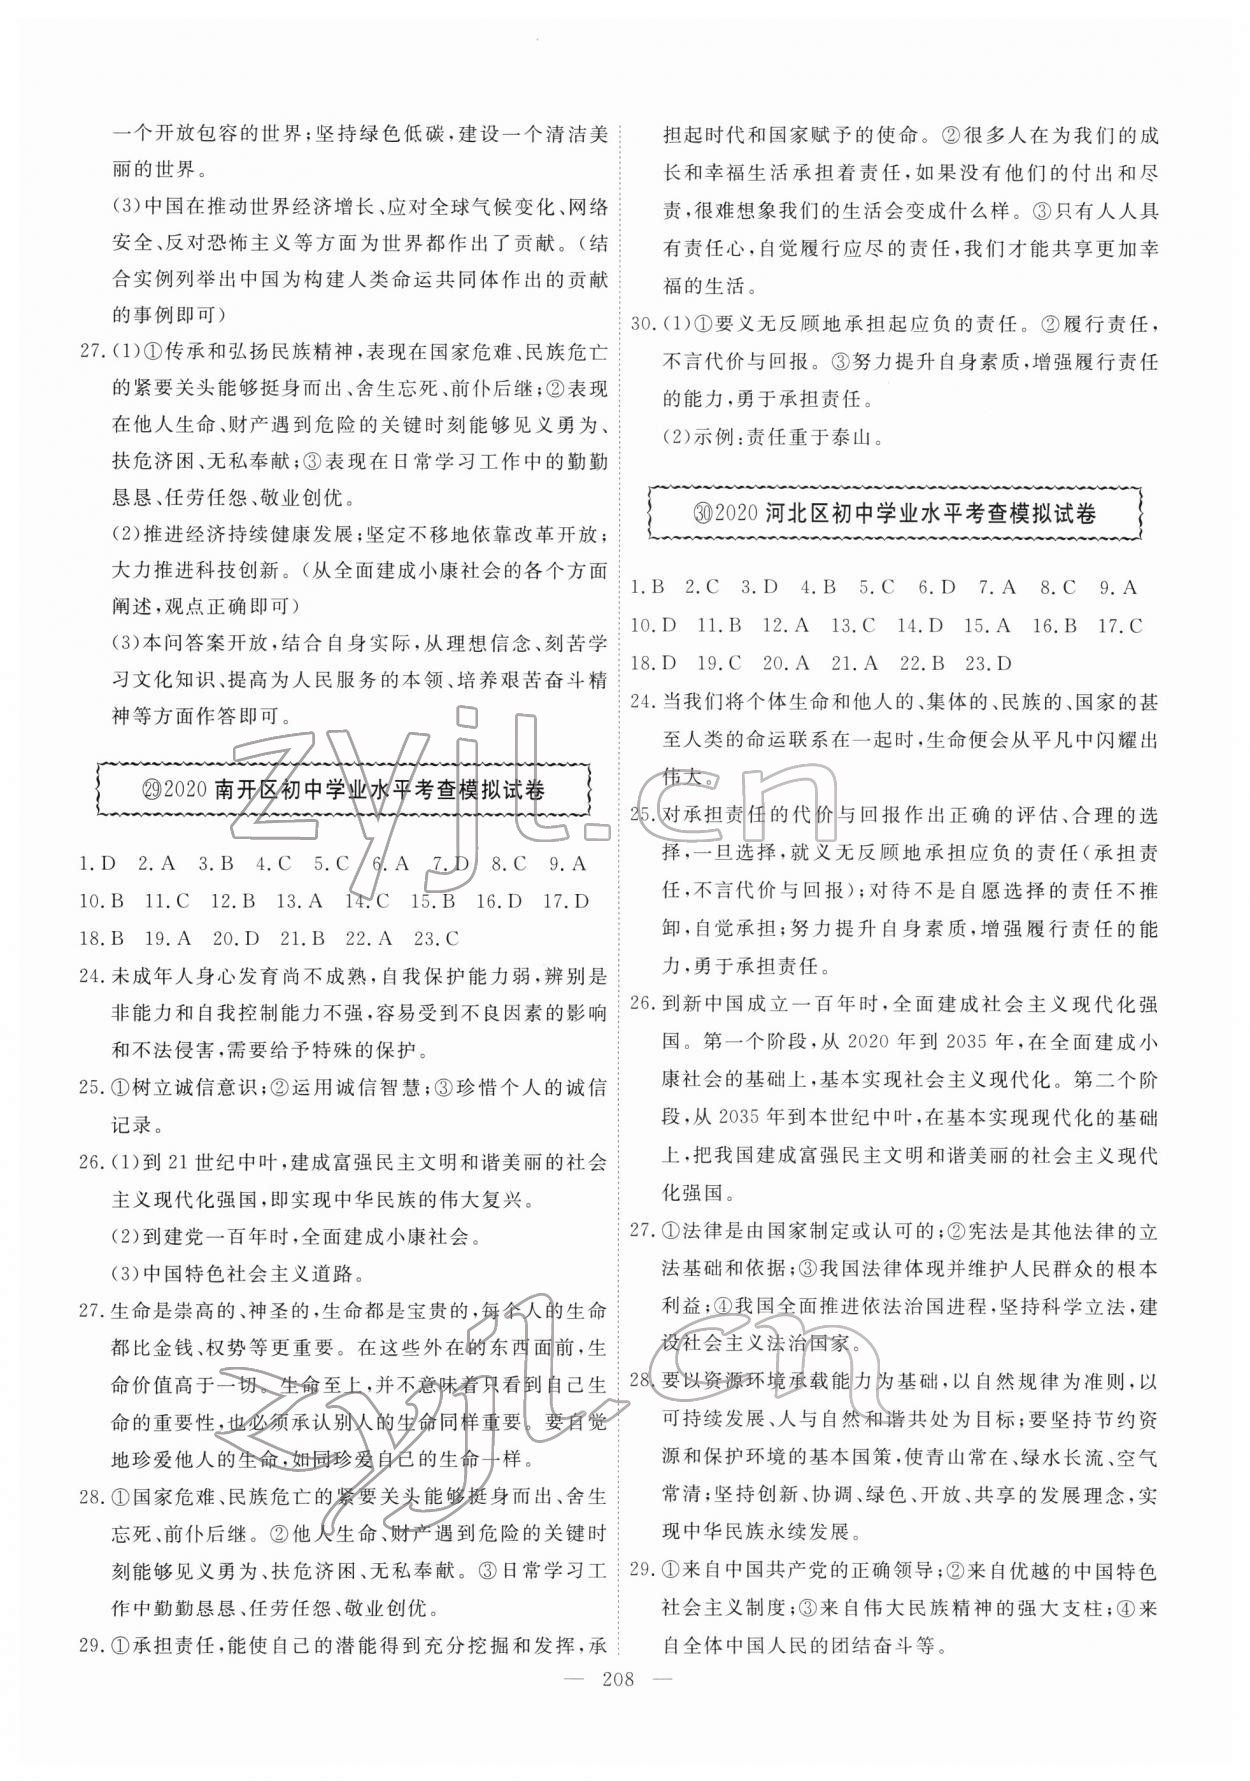 一个开放包容的世界;坚持绿色低碳,建设一个清洁美
丽的世界。
(3)中国在推动世界经济增长、应对全球气候变化、网络
安全、反对恐怖主义等方面为世界都作出了贡献。(结
合实例列举出中国为构建人类命运共同体作出的贡献
的事例即可)
27. (1)①传承和弘扬民族精神,表现在国家危难、民族危亡
的紧要关头能够挺身而出、舍生忘死、前仆后继;②表现
在他人生命、财产遇到危险的关键时刻能够见义勇为、
扶危济困、无私奉献;③表现在日常学习工作中的勤勤
恳恳、任劳任怨、敬业创优。
(2)推进经济持续健康发展;坚定不移地依靠改革开放;
大力推进科技创新。(从全面建成小康社会的各个方面
阐述,观点正确即可)
(3)本问答案开放,结合自身实际,从理想信念、刻苦学
习文化知识、提高为人民服务的本领、培养艰苦奋斗精
神等方面作答即可。
㉙2020 南开区初中学业水平考查模拟试卷
1. D 2. A 3. B 4. C 5. C 6. A 7. D 8. C 9. A
10. B 11. C 12. B 13. A 14. C 15. B 16. D 17. D
18. B 19. A 20. D 21. B 22. A 23. C
24. 未成年人身心发育尚不成熟,自我保护能力弱,辨别是
非能力和自我控制能力不强,容易受到不良因素的影响
和不法侵害,需要给予特殊的保护。
25. ①树立诚信意识;②运用诚信智慧;③珍惜个人的诚信
记录。
26. (1)到 21 世纪中叶,建成富强民主文明和谐美丽的社会
主义现代化强国,即实现中华民族的伟大复兴。
(2)到建党一百年时,全面建成小康社会。
(3)中国特色社会主义道路。
27. 生命是崇高的、神圣的,生命都是宝贵的,每个人的生命
都比金钱、权势等更重要。在这些外在的东西面前,生
命价值高于一切。生命至上,并不意味着只看到自己生
命的重要性,也必须承认别人的生命同样重要。要自觉
地珍爱他人的生命,如同珍爱自己的生命一样。
28. ①国家危难、民族危亡的紧要关头能够挺身而出、舍生
忘死、前仆后继。②他人生命、财产遇到危险的关键时
刻能够见义勇为、扶危济困、无私奉献。③日常学习工
作中勤勤恳恳、任劳任怨、敬业创优。
29. ①承担责任,能使自己的潜能得到充分挖掘和发挥,承
担起时代和国家赋予的使命。②很多人在为我们的成
长和幸福生活承担着责任,如果没有他们的付出和尽
责,很难想象我们的生活会变成什么样。③只有人人具
有责任心,自觉履行应尽的责任,我们才能共享更加幸
福的生活。
30. (1)①要义无反顾地承担起应负的责任。②履行责任,
不言代价与回报。③努力提升自身素质,增强履行责任
的能力,勇于承担责任。
(2)示例:责任重于泰山。
㉚2020 河北区初中学业水平考查模拟试卷
1. B 2. C 3. D 4. B 5. C 6. D 7. A 8. C 9. A
10. D 11. B 12. A 13. C 14. D 15. A 16. B 17. C
18. D 19. C 20. A 21. A 22. B 23. D
24. 当我们将个体生命和他人的、集体的、民族的、国家的甚
至人类的命运联系在一起时,生命便会从平凡中闪耀出
伟大。
25. 对承担责任的代价与回报作出正确的评估、合理的选
择,一旦选择,就义无反顾地承担应负的责任(承担责
任,不言代价与回报);对待不是自愿选择的责任不推
卸,自觉承担;努力提升自身素质,增强履行责任的能
力,勇于承担责任。
26. 到新中国成立一百年时,全面建成社会主义现代化强
国。第一个阶段,从 2020 年到 2035 年,在全面建成小
康社会的基础上,基本实现社会主义现代化。第二个阶
段,从 2035 年到本世纪中叶,在基本实现现代化的基础
上,把我国建成富强民主文明和谐美丽的社会主义现代
化强国。
27. ①法律是由国家制定或认可的;②宪法是其他法律的立
法基础和依据;③我国法律体现并维护人民群众的根本
利益;④我国全面推进依法治国进程,坚持科学立法,建
设社会主义法治国家。
28. 要以资源环境承载能力为基础,以自然规律为准则,以
可持续发展、人与自然和谐共处为目标;要坚持节约资
源和保护环境的基本国策,使青山常在、绿水长流、空气
常清;坚持创新、协调、绿色、开放、共享的发展理念,实
现中华民族永续发展。
29. ①来自中国共产党的正确领导;②来自优越的中国特色
社会主义制度;③来自伟大民族精神的强大支柱;④来
自全体中国人民的团结奋斗等。
— 208 —
zyjl.cn
zyjl.cn